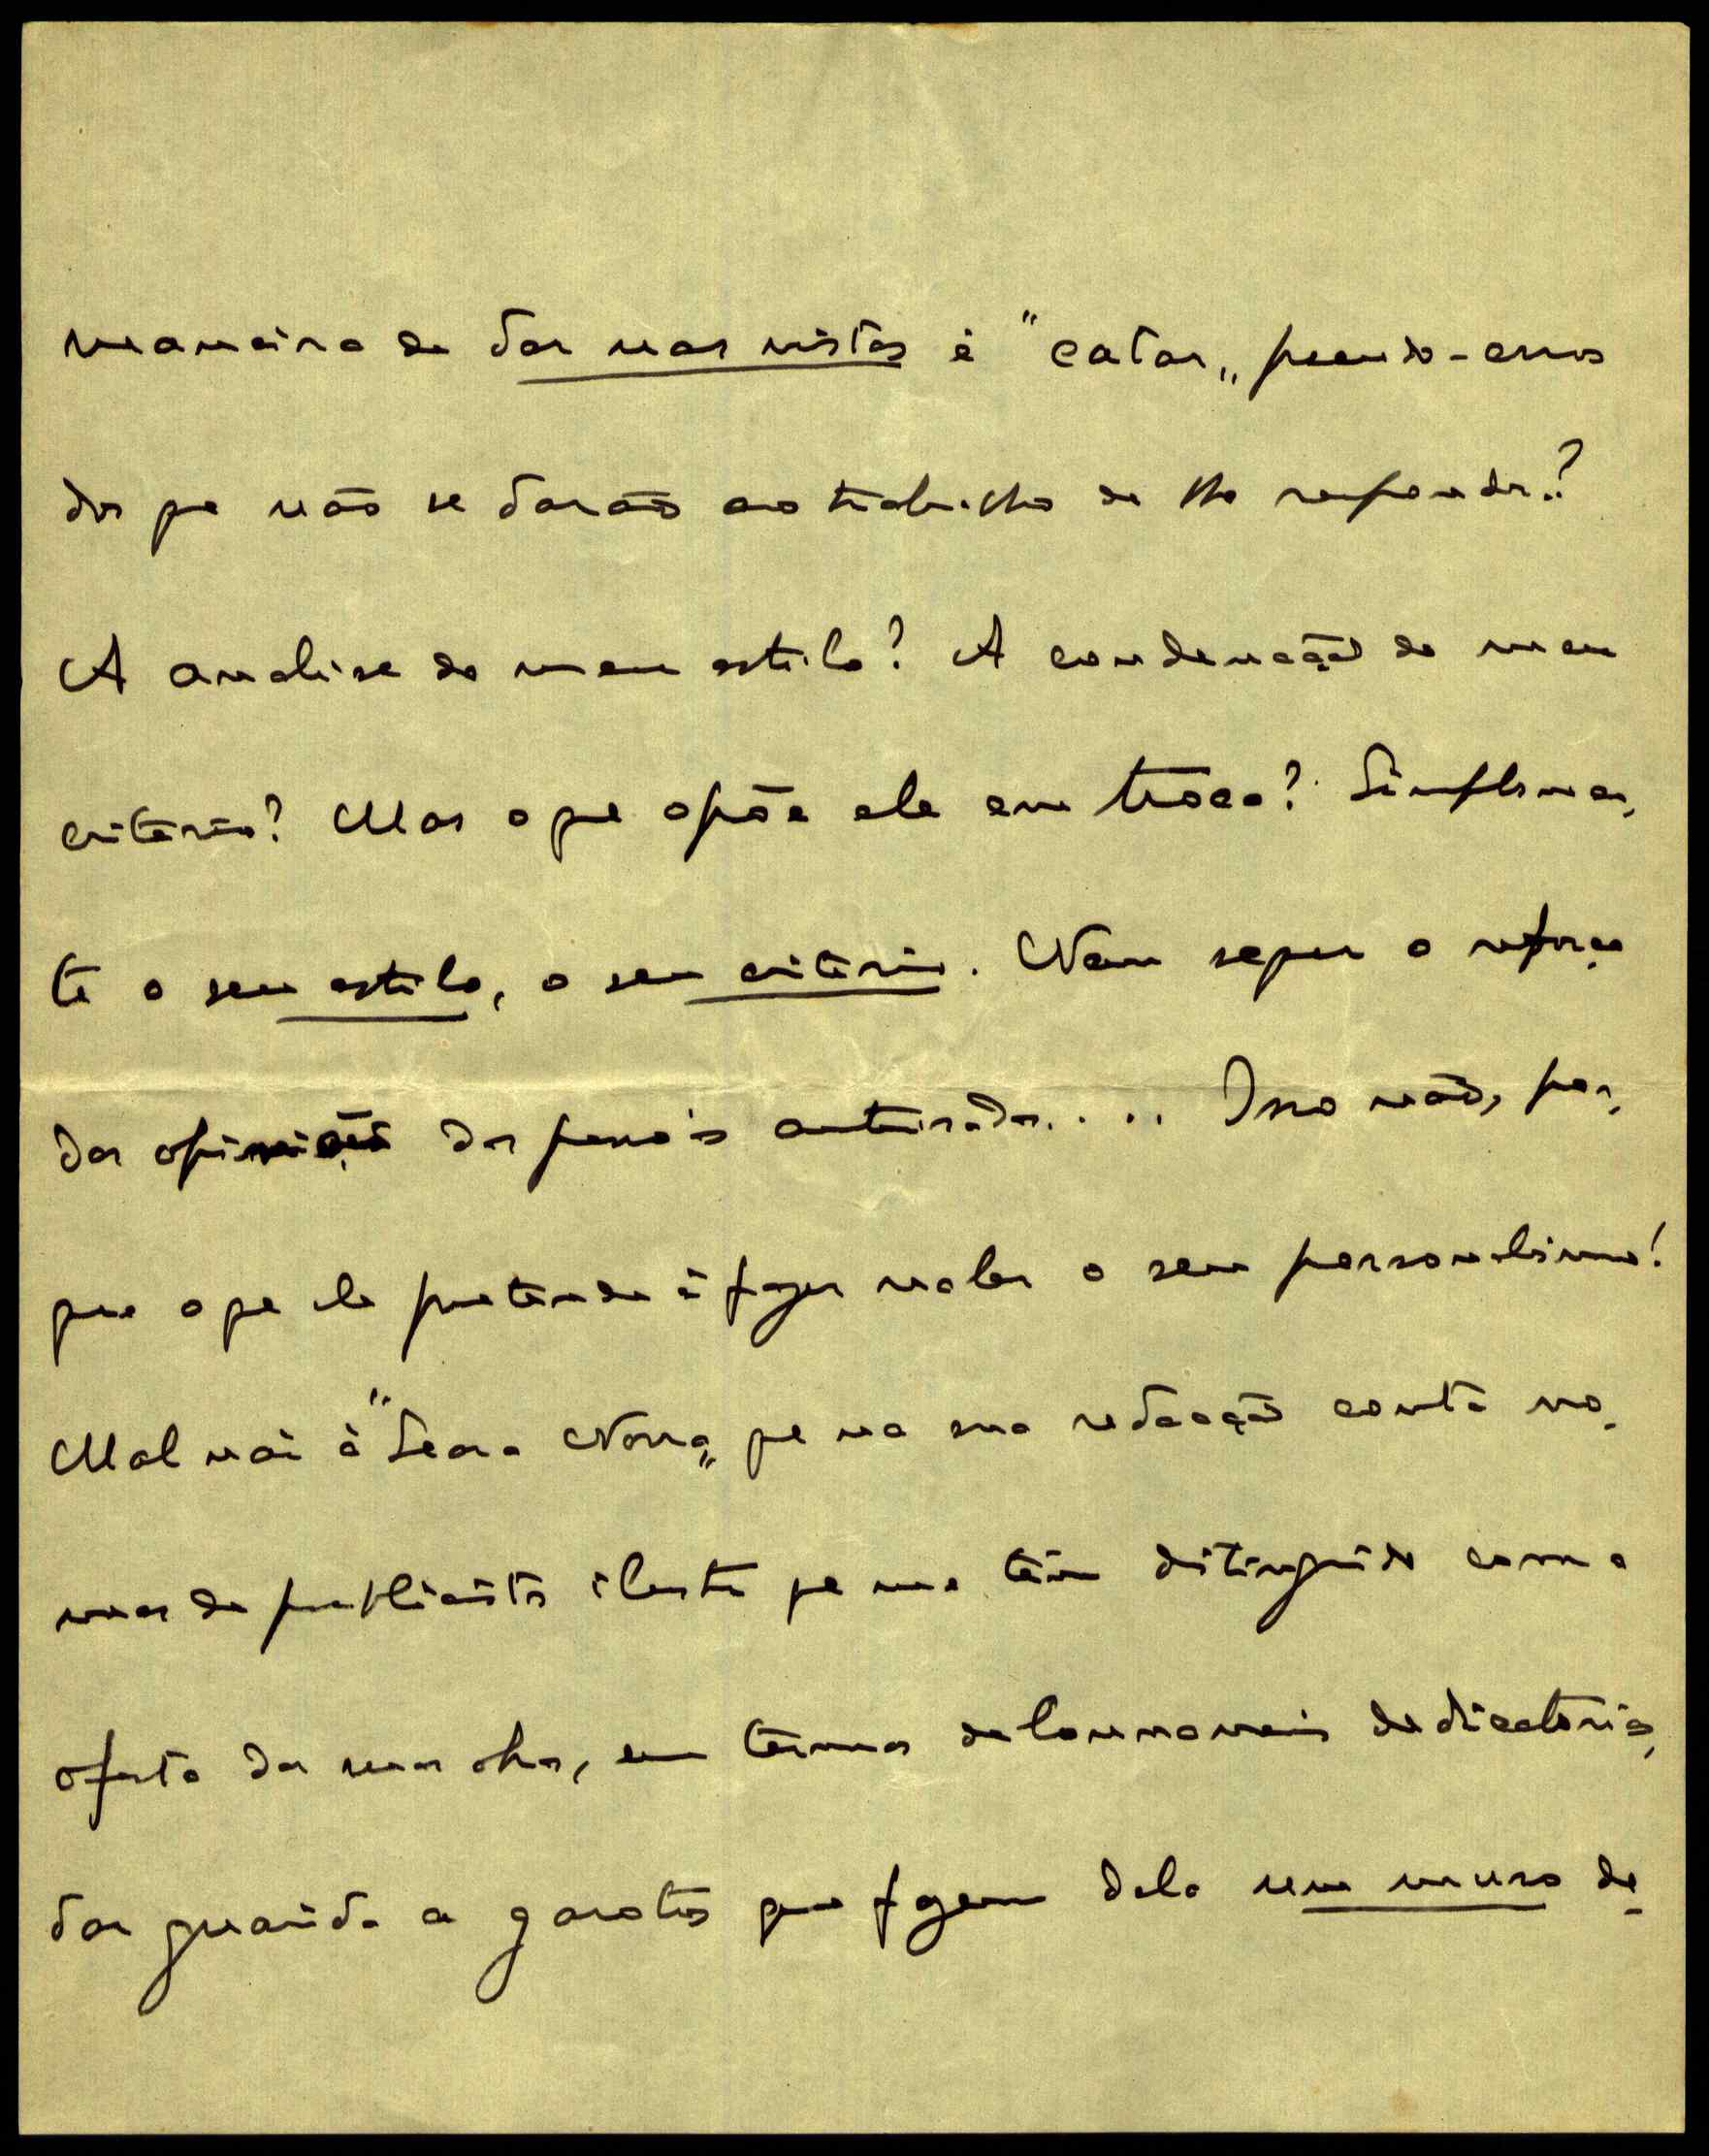 maneira de dar nas vistas é "catar„ pseudo-erros
dos que não se darão ao trabalho de lho responder?
A analise do meu estilo? A condenação do meu
critério? Mas o que opõe ele em troca? Simplesmen-
te o seu estilo, o seu critério. Nem sequer o reforço
das opiniões das pessoas autorisadas.... Isso não, por-
que o que ele pretende é fazer valer o seu personalismo!
Mal vai à "Seara Nova„ que na sua redacção conta no-
mes de publicistas ilustres que me têm distinguido com a
oferta das suas obras, em termos de louvaveis dedicatorias,
dar guarida a garotos que fazem dela um muro de-